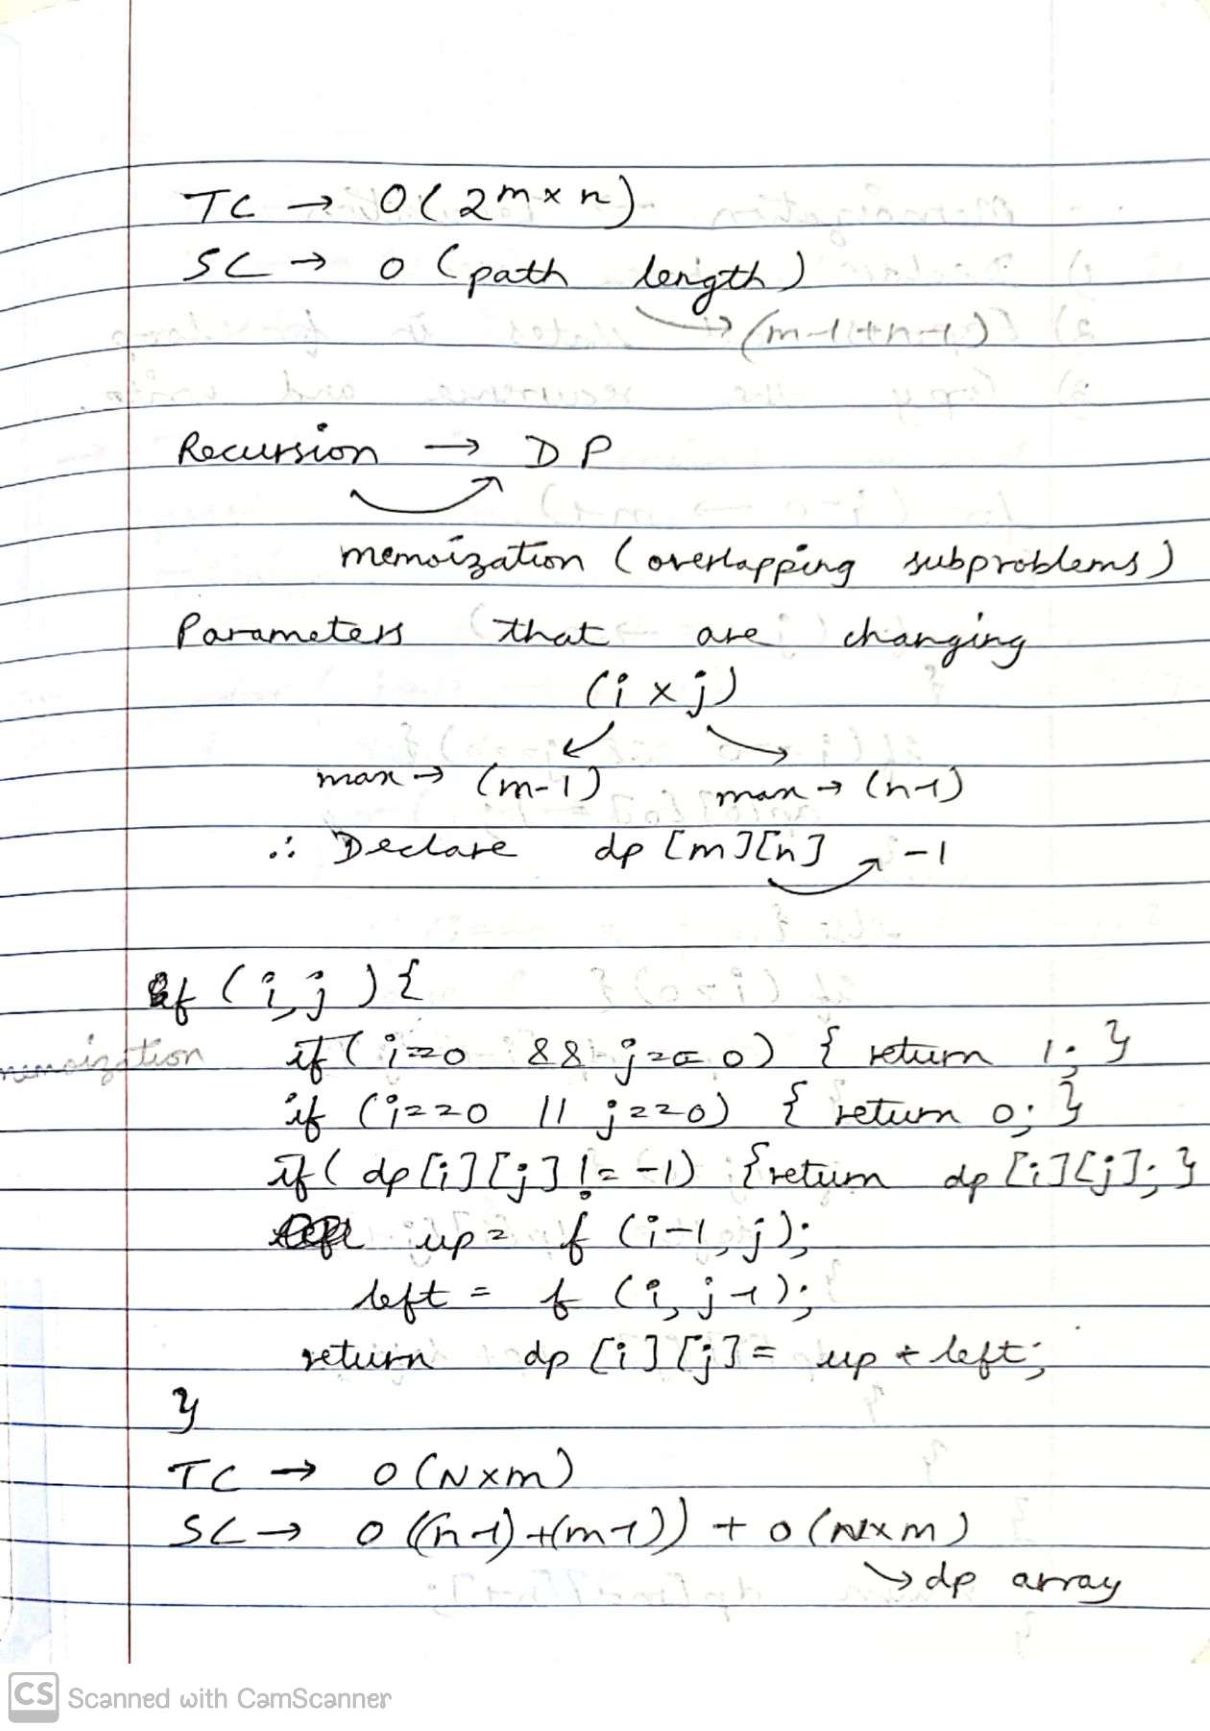 TC → O(2^m×n)
SC → O(path length)
→ (m-1+n-1)
Recursion → DP
memoization (overlapping subproblems)
Parameters that are changing
(i × j)
max → (m-1) max → (n-1)
∴ Declare dp[m][n] → -1
f(i,j){
memoization if(i==0 && j==0) { return 1; }
if (i==0 || j==0) { return 0; }
if( dp[i][j] != -1) {return dp[i][j]; }
up = f(i-1, j);
left = f(i, j-1);
return dp[i][j] = up + left;
}
TC → O(N×m)
SC → O((n-1)+(m-1)) + O(N×m)
→ dp array
CS Scanned with CamScanner